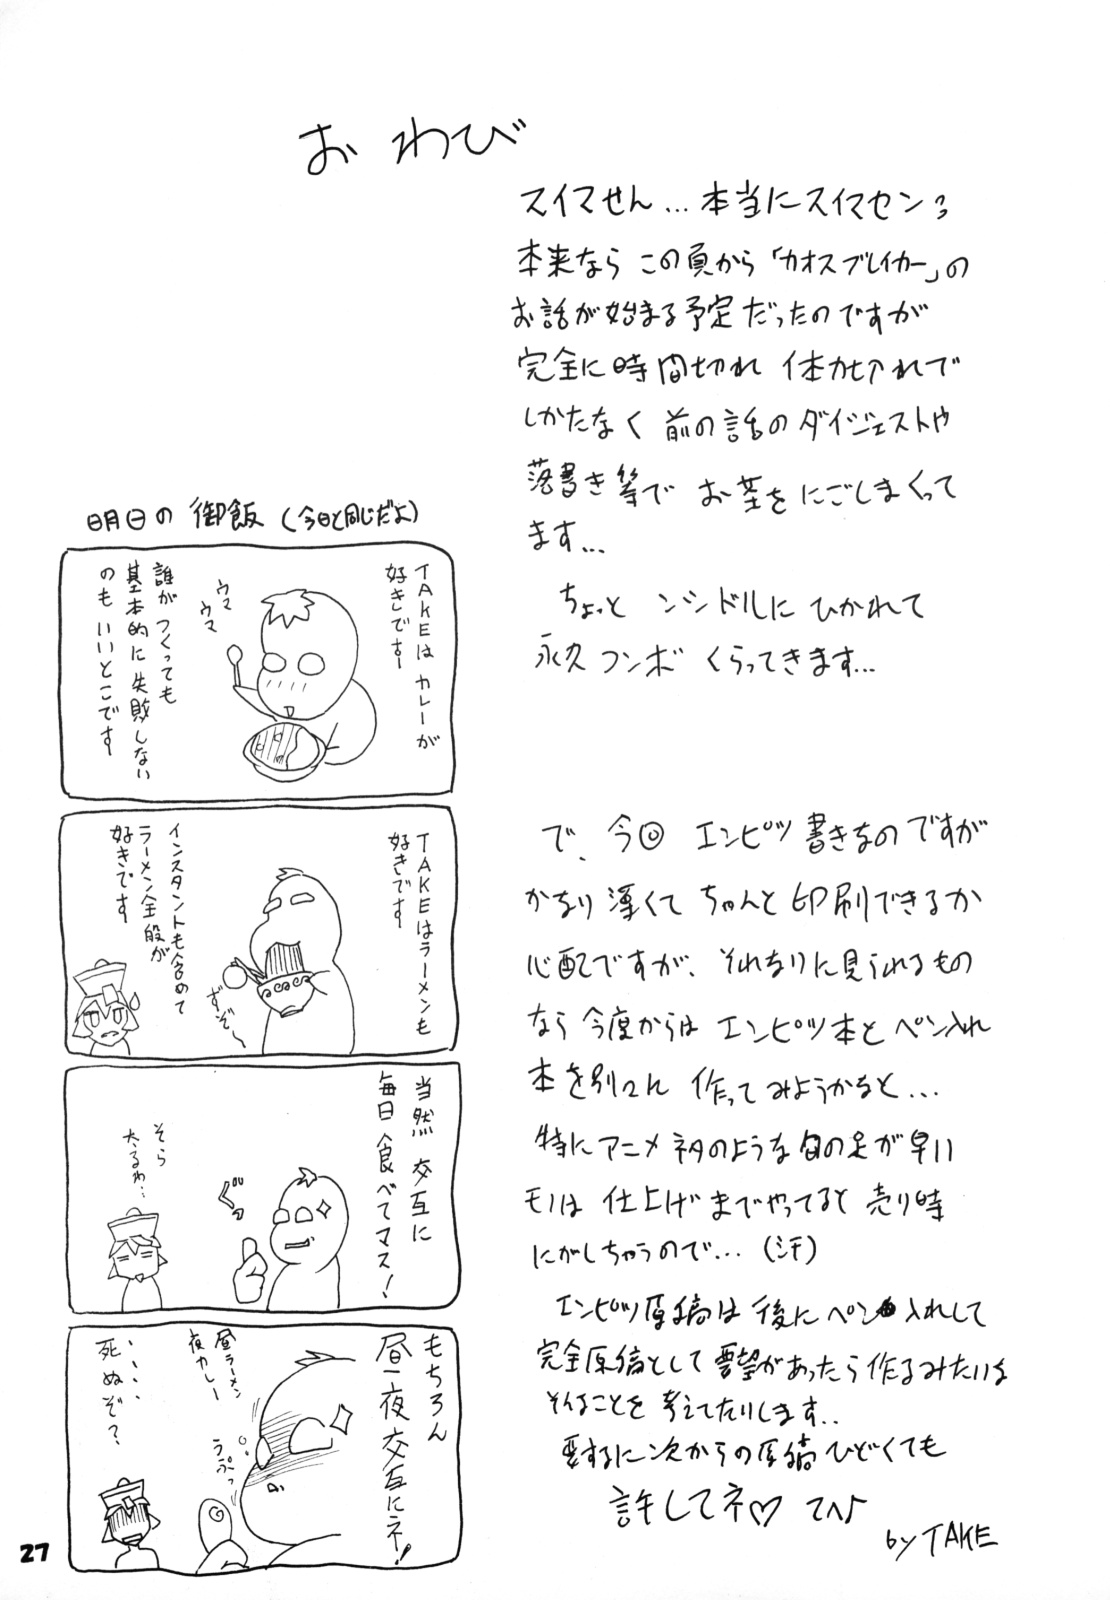 おわび
スイマせん…本当にスイマセン
本来なら この頁から「カオスブレイカー」の
お話が始まる予定だったのですが
完全に時間切れ 体力切れで
しかたなく 前の話のダイジェストや
落書き等で お茶をにごしまくって
ます…
ちょっと シンドルに ひかれて
永久コンボ くらってきます…
で、今回 エンピツ書きなのですが
かなり薄くて ちゃんと印刷できるか
心配ですが、それなりに見られるもの
なら 今度からは エンピツ本と ペン入れ
本を別々に 作ってみようかなと…
特にアニメネタのような旬の足が早い
モノは 仕上げまでやってると 売り時
にがしちゃうので…(汗)
エンピツ原稿は 後にペン入れして
完全原稿として要望があったら作るみたいな
そんなことを 考えてたりします..
要するに次からの原稿ひどくても
許してネ♡ てへ♪
by TAKE
明日の 御飯(今日と同じだよ)
TAKEは カレーが
好きです
ウマ
ウマ
誰が つくっても
基本的に 失敗しない
のも いいとこです
TAKEはラーメンも
好きです
インスタントも含めて
ラーメン全般が
好きです
ずぞ〜
当然 交互に
毎日 食べてマス!
ぐっ
そら
太るわ…
もちろん
昼夜交互にネ!
昼ラーメン
夜カレー
うぷっ
・・・・
死ぬぞ?
27